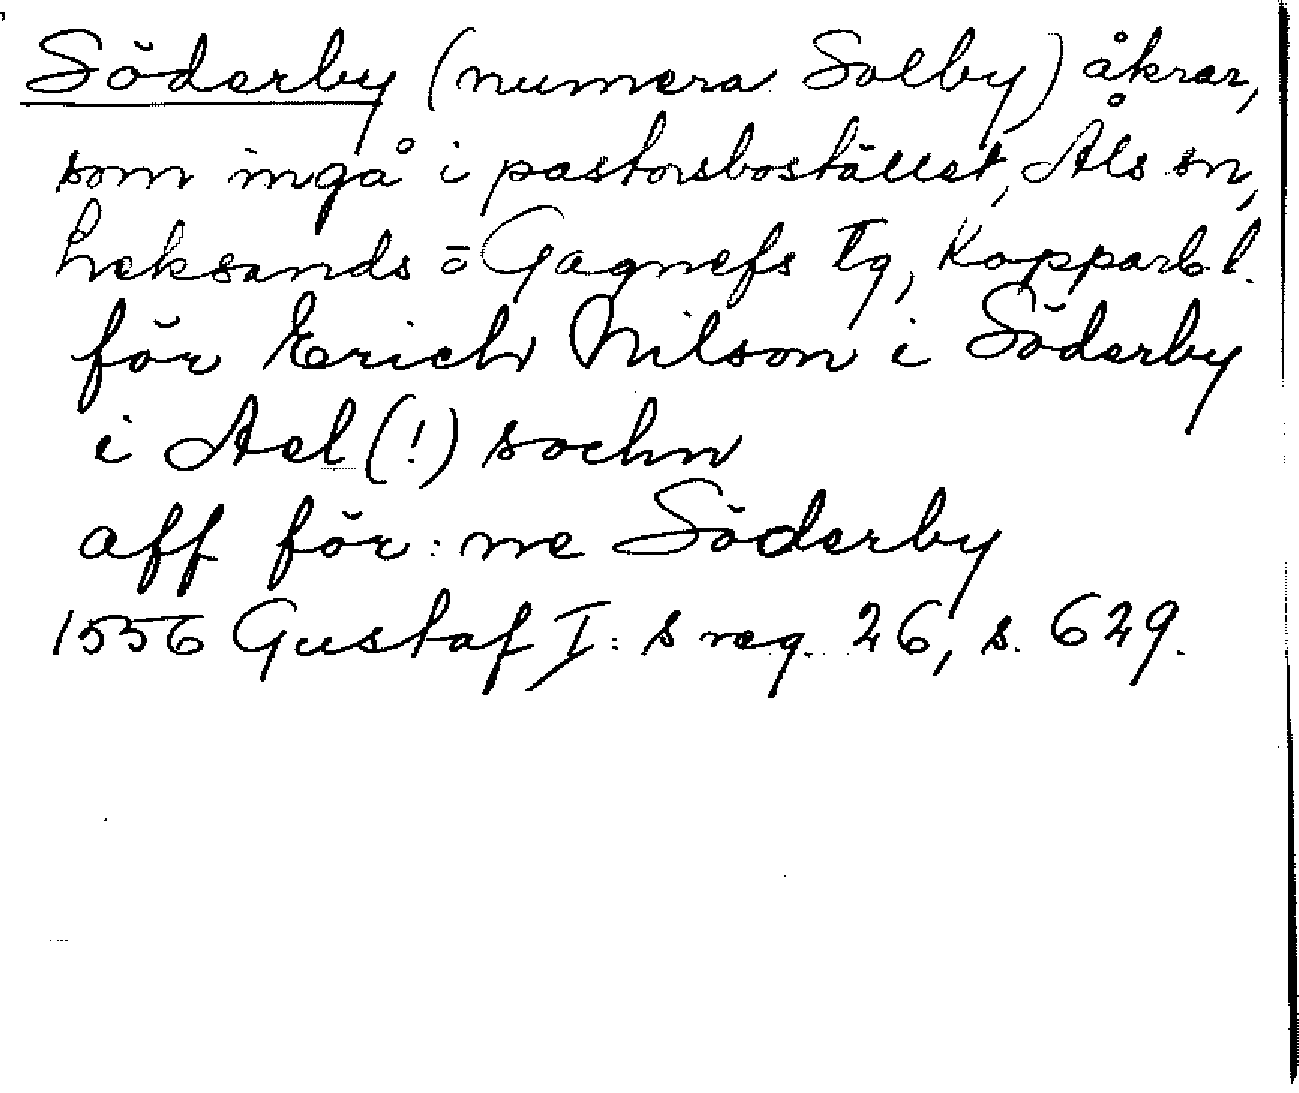 Söderby (numera Solby) åkrar,
som ingå i pastorsbostället, Åls sn,
Leksands o Gagnefs tg, Kopparb. l.
för Erich Nilson i Söderby
i Ael (!) sochn
aff för:ne Söderby
1556 Gustaf I:s reg. 26, s. 629.